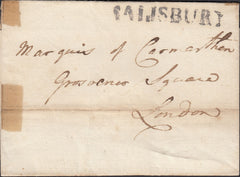 SALISBURY
Marquis of Carmarthen
Grosvenor Square
London